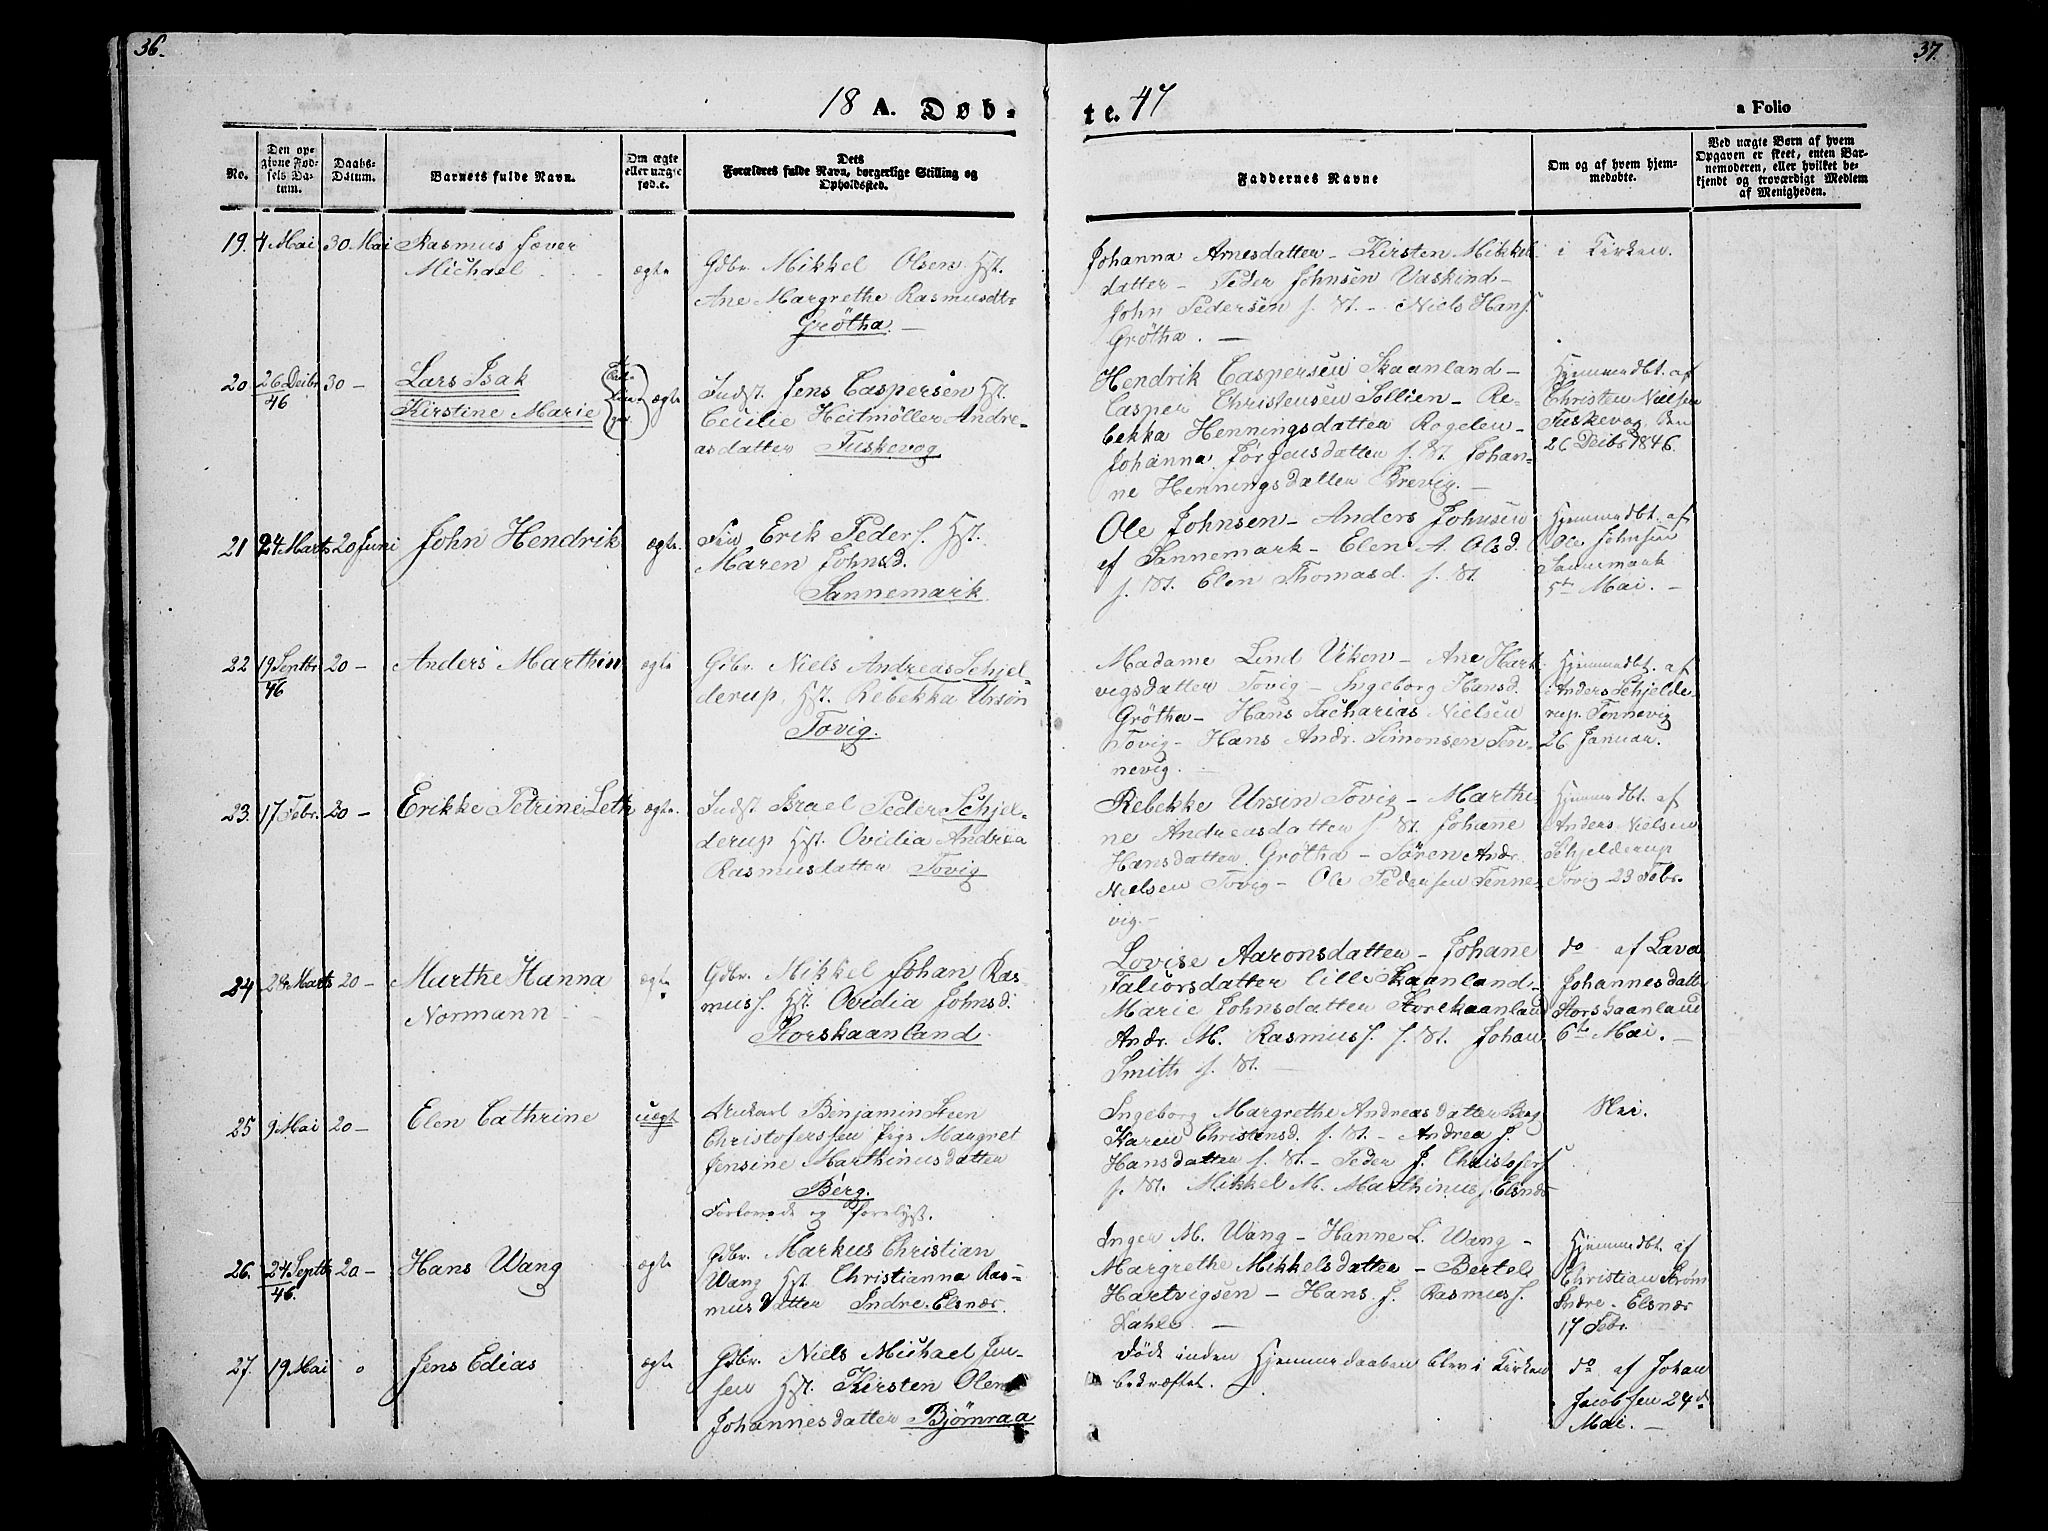 36.
37.
18 A. Døb-
te. 47
a Folio
No.
Den op-
givne Fød-
sels Da-
tum.
Daabs-
Datum.
Barnets fulde Navn.
Om ægte
eller uægte
fød.e.
Dets
Forældres fulde Navn, borgerlige Stilling og
Opholdssted.
Faddernes Navne
Om og af hvem hjem-
medøbte.
Ved uægte Børn af hvem
Opgaven er skeet, enten Bar-
nemoderen, eller hvilket be-
kjendt og troværdigt Medlem
af Menigheden.
19. 4 Mai 30. Mai Rasmus Jæver
Michael
ægte
Gdbr. Mikkel Olsen Hst.
Ane Margrethe Rasmusdtr
Grötha. —
Johanna Arnesdatter - Kirsten Mikkel
datter - Peder Johnsen Vaskind -
John Pedersen f. St. - Niels Hans.
Grötha. —
i Kirken.
20. 26 Decbr 46 30 -
Lars Isak
Kirstine Marie
ægte
Indst. Jens Caspersen Hst.
Cecilie Heitmöller Andre-
asdatter Fuskevog
Hendrik Caspersen Skaanland -
Casper Christensen Sollien - Re-
bekka Henningsdatter Rogelen -
Johanna Jörgensdatter f. St. Johan-
ne Henningsdatter Brevig. —
Hjemmedbt. af
Christen Nielsen
Fuskevog den
26 Decbr 1846.
21 24 Marts 20 Juni John Hendrik ægte.
Erik Peders. Hst.
Maren Johnsd.
Sannemark
Ole Johnsen - Anders Johnsen
af Sannemark - Elen A. Olsd.
f. St. Elen Thomasd. f. St.
Hjemmedbt. af
Ole Johnsen
Sannemark
5te Mai. —
22 19 Septbr 46 20 - Anders Marthin ægte
Gdbr. Niels Andreas Schjel-
derup, Hst. Rebekka Ursin
Tovig.
Madame Lind Viken - Ane Hart-
vigsdatter Tovig - Ingeborg Hansd.
Grötha - Hans Sacharias Nielsen
Tovig - Hans Andr. Simonsen Ten-
nevig.
Hjemmedbt. af
Anders Schjelde-
rup. Tennevig
26 Januar.
23. 17 Febr. 20 - Erikke Petrine Leth ægte.
Indst Israel Peder Schjel-
derup Hst. Ovidia Andrea
Rasmusdatter Tovig
Rebekke Ursin Tovig - Marthe-
ne Andreasdatter f. St. Johane
Hansdatter Grötha - Sören Andr.
Nielsen Tovig - Ole Pedersen Tenne-
vig. -
Hjemmedbt. af
Anders Nielsen
Schjelderup
Tovig 23 Febr.
24 28 Marts 20 - Marthe Hanna
Normann
ægte
Gdbr. Mikkel Johan Ras-
muss. Hst Ovidia Johnsd.
Storskaanland
Lovise Aaronsdatter - Johane
Taliorsdatter lille Skaanland -
Marie Johnsdatter Storskaanland
Andr. M. Rasmuss. f. St. Johan
Smith f. St. —
do af Lava
Johannesdatter
Storskaanland
6te Mai. —
25 9 Mai 20 - Elen Cathrine uægte
Benjamin Steen
Christofersen Pige Margret
Jensine Marthinusdatter
Berg.
Forlovede og forelyst.
Ingeborg Margrethe Andreasdatter Berg
Karen Christensd. f. St. - Andrea J.
Hansdatter f. St. - Peder J. Christofers.
f. St. Mikkel M. Marthinuss. Elsnæs
Nei.
26. 24 Septbr 46. 20 - Hans Wang ægte
Gdbr. Markus Christian
Wang Hst Christianna Ras-
musdatter Indre. Elsnæs.
Inger M. Wang - Hanne L. Wang -
Margrethe Mikkelsdatter - Bertel
Hartvigsen - Hans J. Rasmuss.
—
Hjemmedbt. af
Christian Ström
Indre. Elsnæs
17 Febr.
27. 19 Mai o Jens Edias ægte
Gdbr. Niels Michael Jen-
sen Hst. Kirsten Olene
Johannesdatter Bjørnraa
Døde inden Hjemmedaaben blev i Kirken
bekræftet.
do af Johan
Jacobsen 24de
Mai. —